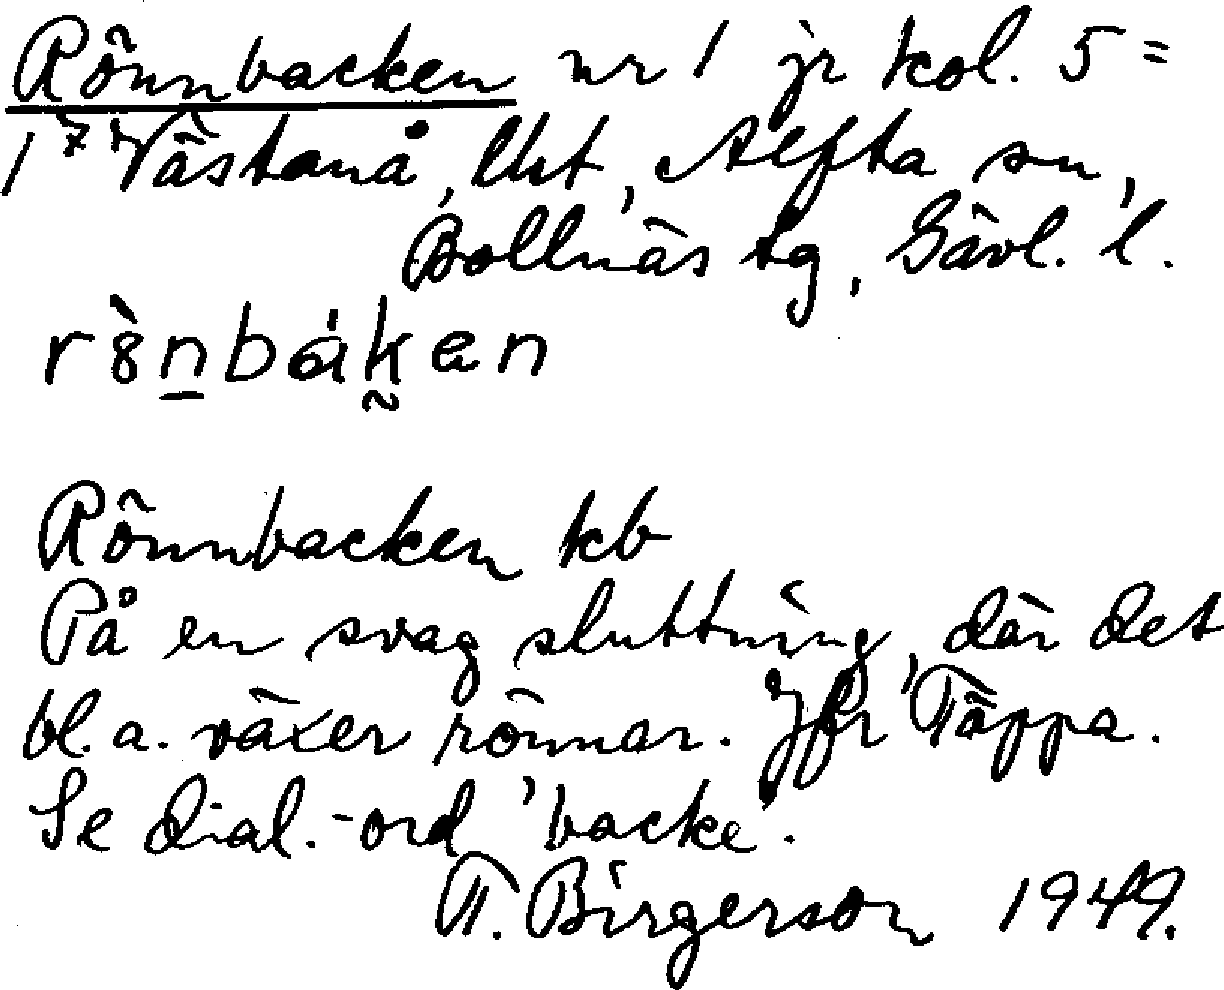 Rönnbacken nr 1 jr kol. 5 =
1⁷ Västanå, Ukt, Alfta sn,
Bollnäs tg, Gävl. l.
Rönnbacken kb
På en svag sluttning, där det
bl. a. växer rönnar. Jfr Täppa.
Se dial.-ord 'backe'.
T. Birgerson 1949.